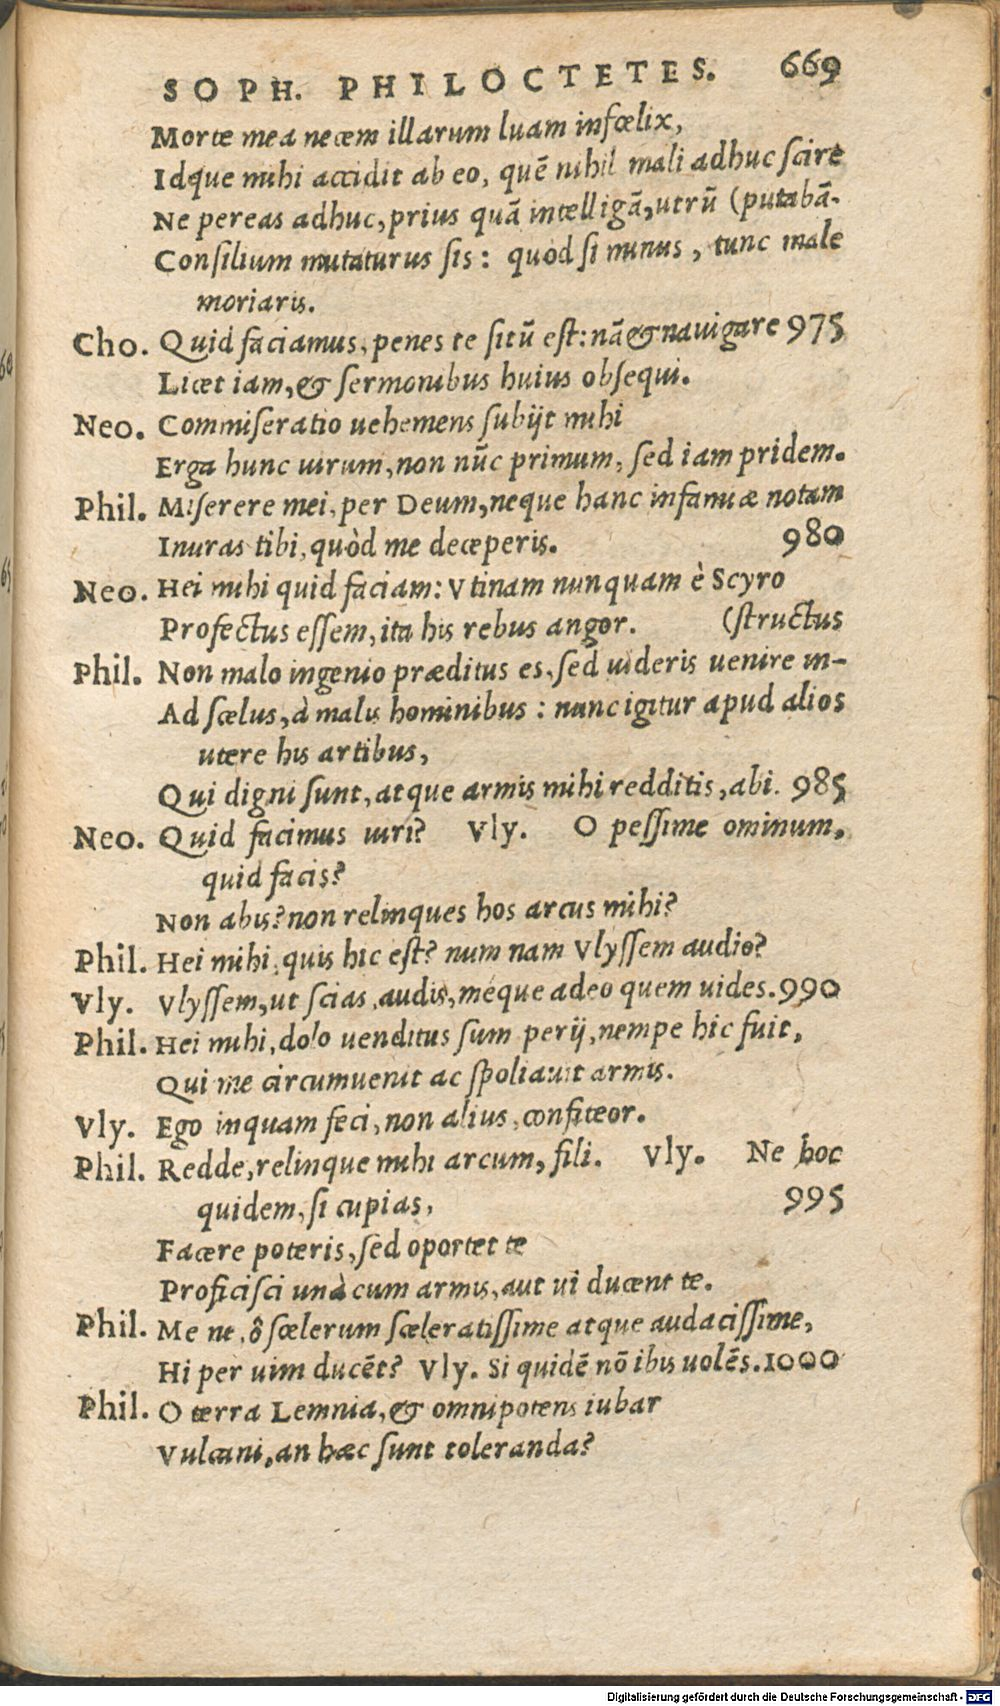 SOPH. PHILOCTETES. 669
Morte mea necem illarum luam infœlix,
Idque mihi accidit ab eo, quẽ nihil mali adhuc scire
Ne pereas adhuc, prius quã intelligã, utrũ (putabã.
Consilium mutaturus sis: quòd si minus, tunc male
moriaris.
Cho. Quid faciamus, penes te sitũ est: nã & nauigare 975
Licet iam, & sermonibus huius obsequi.
Neo. Commiseratio uehemens subijt mihi
Erga hunc uirum, non nũc primum, sed iam pridem.
Phil. Miserere mei, per Deum, neque hanc infamiæ notam
Inuras tibi, quòd me deceperis. 980
Neo. Hei mihi quid faciam: Vtinam nunquam è Scyro
Profectus essem, ita his rebus angor. (structus
Phil. Non malo ingenio præditus es, sed uideris uenire in-
Ad scelus, à malis hominibus: nunc igitur apud alios
utere his artibus,
Qui digni sunt, atque armis mihi redditis, abi. 985
Neo. Quid facimus uiri? Vly. O pessime ominum,
quid facis?
Non abis? non relinques hos arcus mihi?
Phil. Hei mihi, quis hic est? num nam Vlyssem audio?
Vly. Vlyssem, ut scias, audis, méque adeo quem uides. 990
Phil. Hei mihi, dolo uenditus sum perij, nempe hic fuit,
Qui me circumuenit ac spoliauit armis.
Vly. Ego inquam feci, non alius, confiteor.
Phil. Redde, relinque mihi arcum, fili. Vly. Ne hoc
quidem, si cupias, 995
Facere poteris, sed oportet te
Proficisci unà cum armis, aut ui ducent te.
Phil. Me ne, ô scelerum sceleratissime atque audacissime,
Hi per uim ducẽt? Vly. Si quidẽ nõ ibis uolẽs. 1000
Phil. O terra Lemnia, & omnipotens iubar
Vulcani, an hæc sunt toleranda?
Digitalisierung gefördert durch die Deutsche Forschungsgemeinschaft - DFG